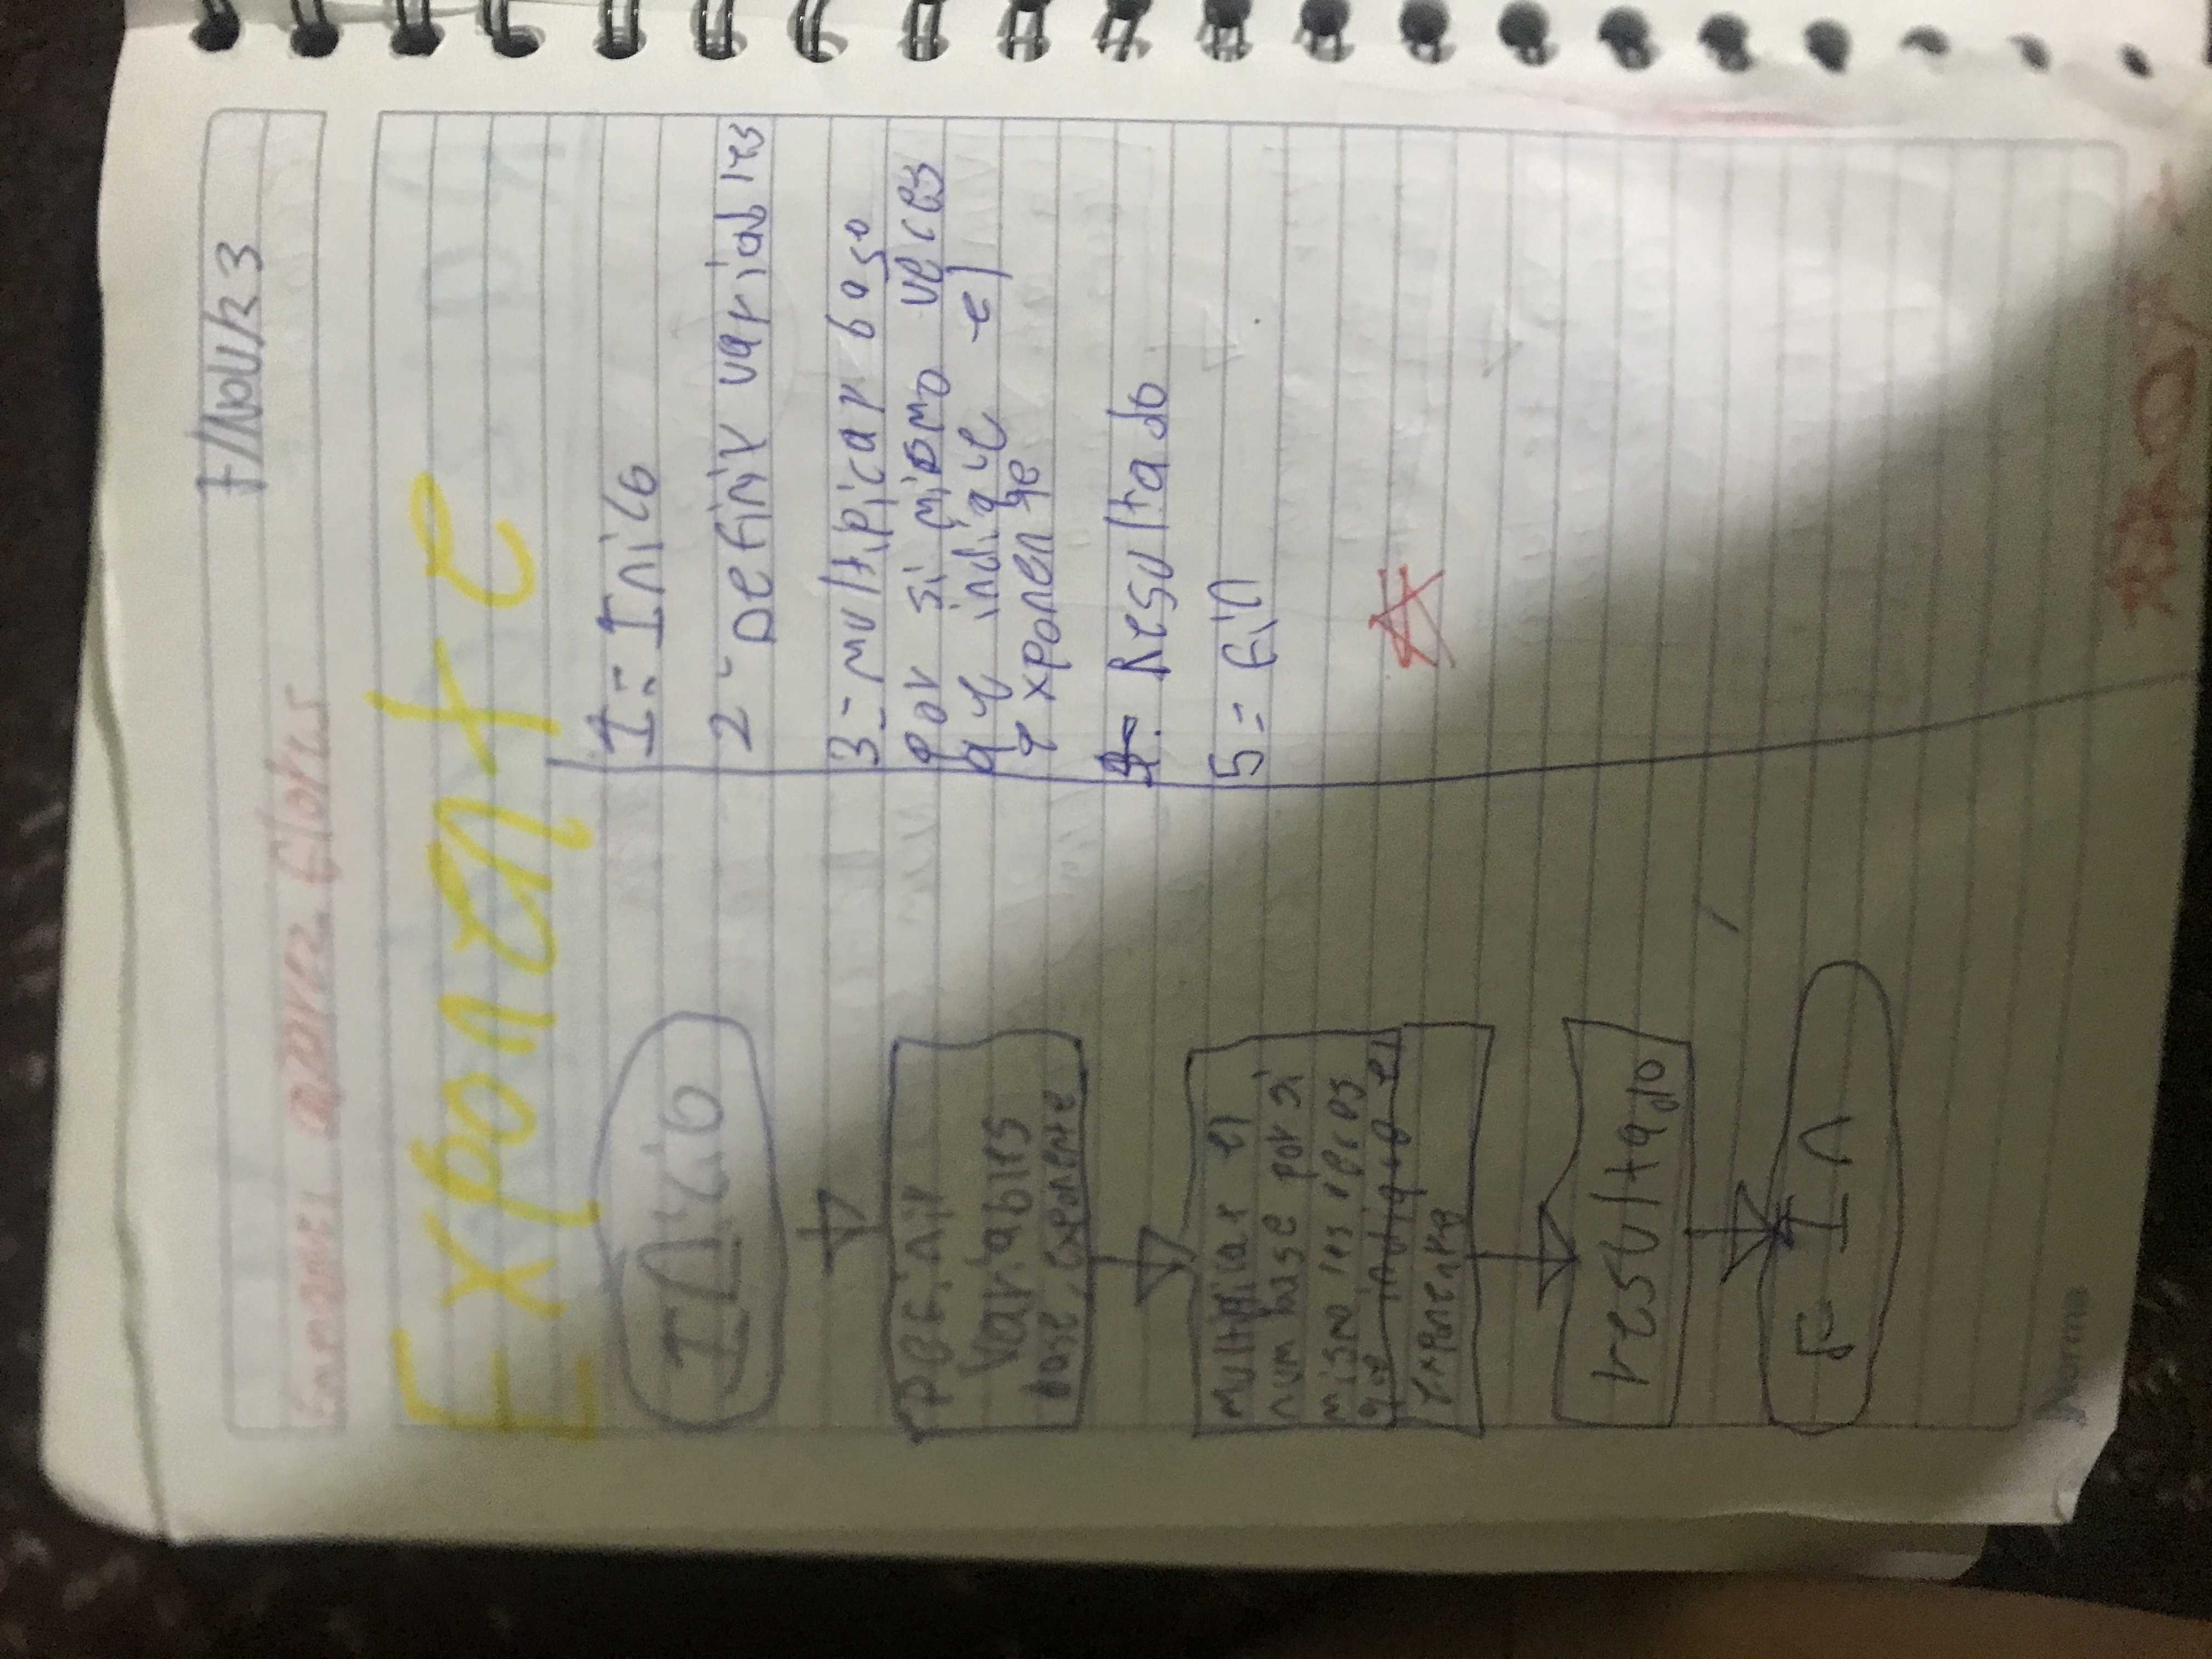 7/Nov/23
Exponente
Inicio
Definir
Variables
base, exponente
Multiplicar el
num base por si
mismo
que indique el
exponente
resultado
FIN
1 = Inico
2 - Definir variables
3 - multiplicar base
por si mismo veces
que indique el
exponente
4 - Resultado
5 = Fin
Norma